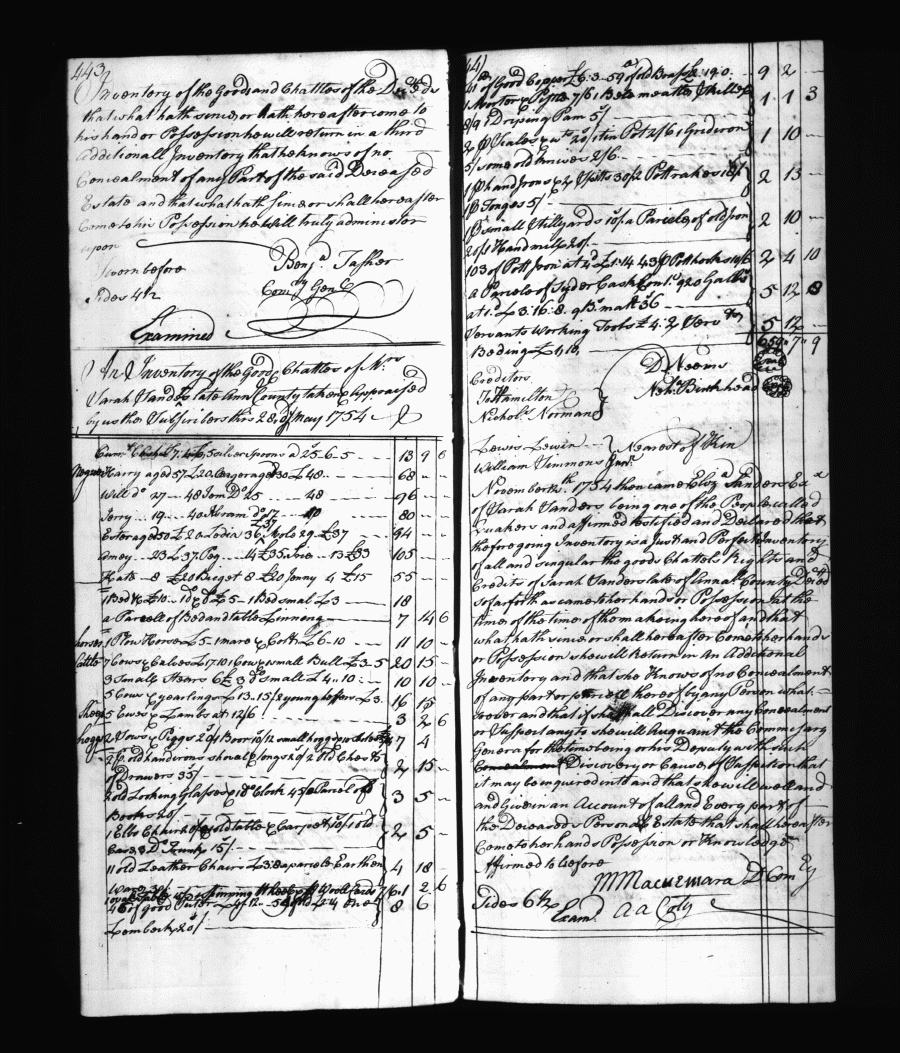 443
Inventory of the Goods and Chattles of the Deceds
that what hath since or hath hereafter come to
his hand or Possession he will return in a third
additionall Inventory that he knows of no
Concealment of any Part of the said Deceased
Estate and that what hath since or shall hereafter
Come to his Possession he will truly administer
upon
Sworn before Benja Tasker
Sides 4 1/2 Comry Genl
Examined
An Inventory of the Goods Chattles of Mrs
Sarah Sanders late Ann County taken & Appraised
by us the Subscribers this 28 d of May 1754
6 Silver Spoons a 25.6 - 5 13 9 6
Negroes Harry aged 57 £20 aged 30 £48 68
Will do 27 - 48 Tom Do 25 48 96
Jerry 19 40 Abram do 17 40 80
Easter aged 50 £20 Lydia 36 £37 Molo 29 £37 94
Amey 23 £37 Peg 14 £35 13 £33 105
Kate 8 £20 Bridget 8 £20 Jenny 4 £15 55
1 Bed & £10 1 do £5 1 Bed small £3 18
a Parcell of Bed and table Linnen 7 14 6
horses 1 Plow Horse £5 1 mare & Colt £6-10 11 10
Cattle 7 Cows & Calves £17.10 1 Cow & small Bull £3-5 20 15
3 Small Steers 6 £ 3 do small £4-10 10 10
5 Cows & yearlings £13-15 2 young heffers £3 16 15
Sheep 5 Ews & Lambs at 12/6 3 2 6
hoggs 2 Sows & Piggs 20/ 1 Boor 10/ 12 small hoggs 7 4
2 pr old handirons shovel & tongs 20/ 2 Old Chests
of Drawers 35/ 2 15
2 old Looking Glasses 1 Clock 45/ a Parcel old
Books 20/ 3 5
1 Elbo Chair old table & Carpet 10/ 1 old
Case & Do Trunk 15/ 2 5
11 old Leather Chairs £3.8 a parcele Earthen
Ware 30/ 4 18
oval Table Spinning Wheel Wooll Cards 7/6 1 2 6
46 of good Puter 8 6
Lembeck 20/
of Good Coper £6.3 - 59 of old Brass £2.19.0 9 2
1 Mortor & Pistle 7/6 1 Belemeattle Skillet
8/9 1 Driping Pan 5/ 1 1 3
2 pr Scales & wts 20/ 1 tin Pot 2/6 1 Gridiron
5/ some old knives 2/6 1 10
1 pr hand Irons & 2 Spits 30/ 2 Pottrakes 18/
1 pr Tonges 5/ 2 13
1 pr small Stillyards 10/ a Parcele of old Iron
20/ 1 Handmill 20/ 2 10
103 of Pott Iron at 4d £1.14.4 3 pr Pothooks 2 4 10
a Parcele of Syder Cask Cont 920 Gallons
at 1d £3.16.8. 9 Bs malt 36 5 12 8
Servants Working Tools £4.2 Serv ts
Beding £1.10 5 12
659 7 9
Creditors D Weems
Js Hamilton Neh. Birkhead
Nichols Norman
Lewis Lewin Nearest of Kin
William Simmons Junr
November th 1754 then came Elizh Sanders Exx
of Sarah Sanders being one of the People called
Quakers and affirmed testified and Declared that
the foregoing Inventory is a Just and Perfect Inventory
of all and singular the goods Chattels Rights and
Credits of Sarah Sanders late of Anna County Deced
so far forth as came to her hands or Possession at the
time of the time of the making hereof and that
what hath since or shall hereafter Come to her hands
or Possession she will Return in An Additional
Inventory and that she Knows of no Concealment
of any part or parcell hereof by any Person what-
soever and that if she shall Discover any Concealment
or Suspect any to she will Acquaint the Commissary
General for the time being or his Deputy with such
Concealment Discovery or Cause of Suspection that
it may be inquired into and that she will well and
and Give in an Account of all and Every part of
the Deceaseds Personal Estate that shall hereafter
Come to her hands Possession or Knowledge
Affirmed to before
M Macnemara D Com ry
Sides 6 1/2
Examd